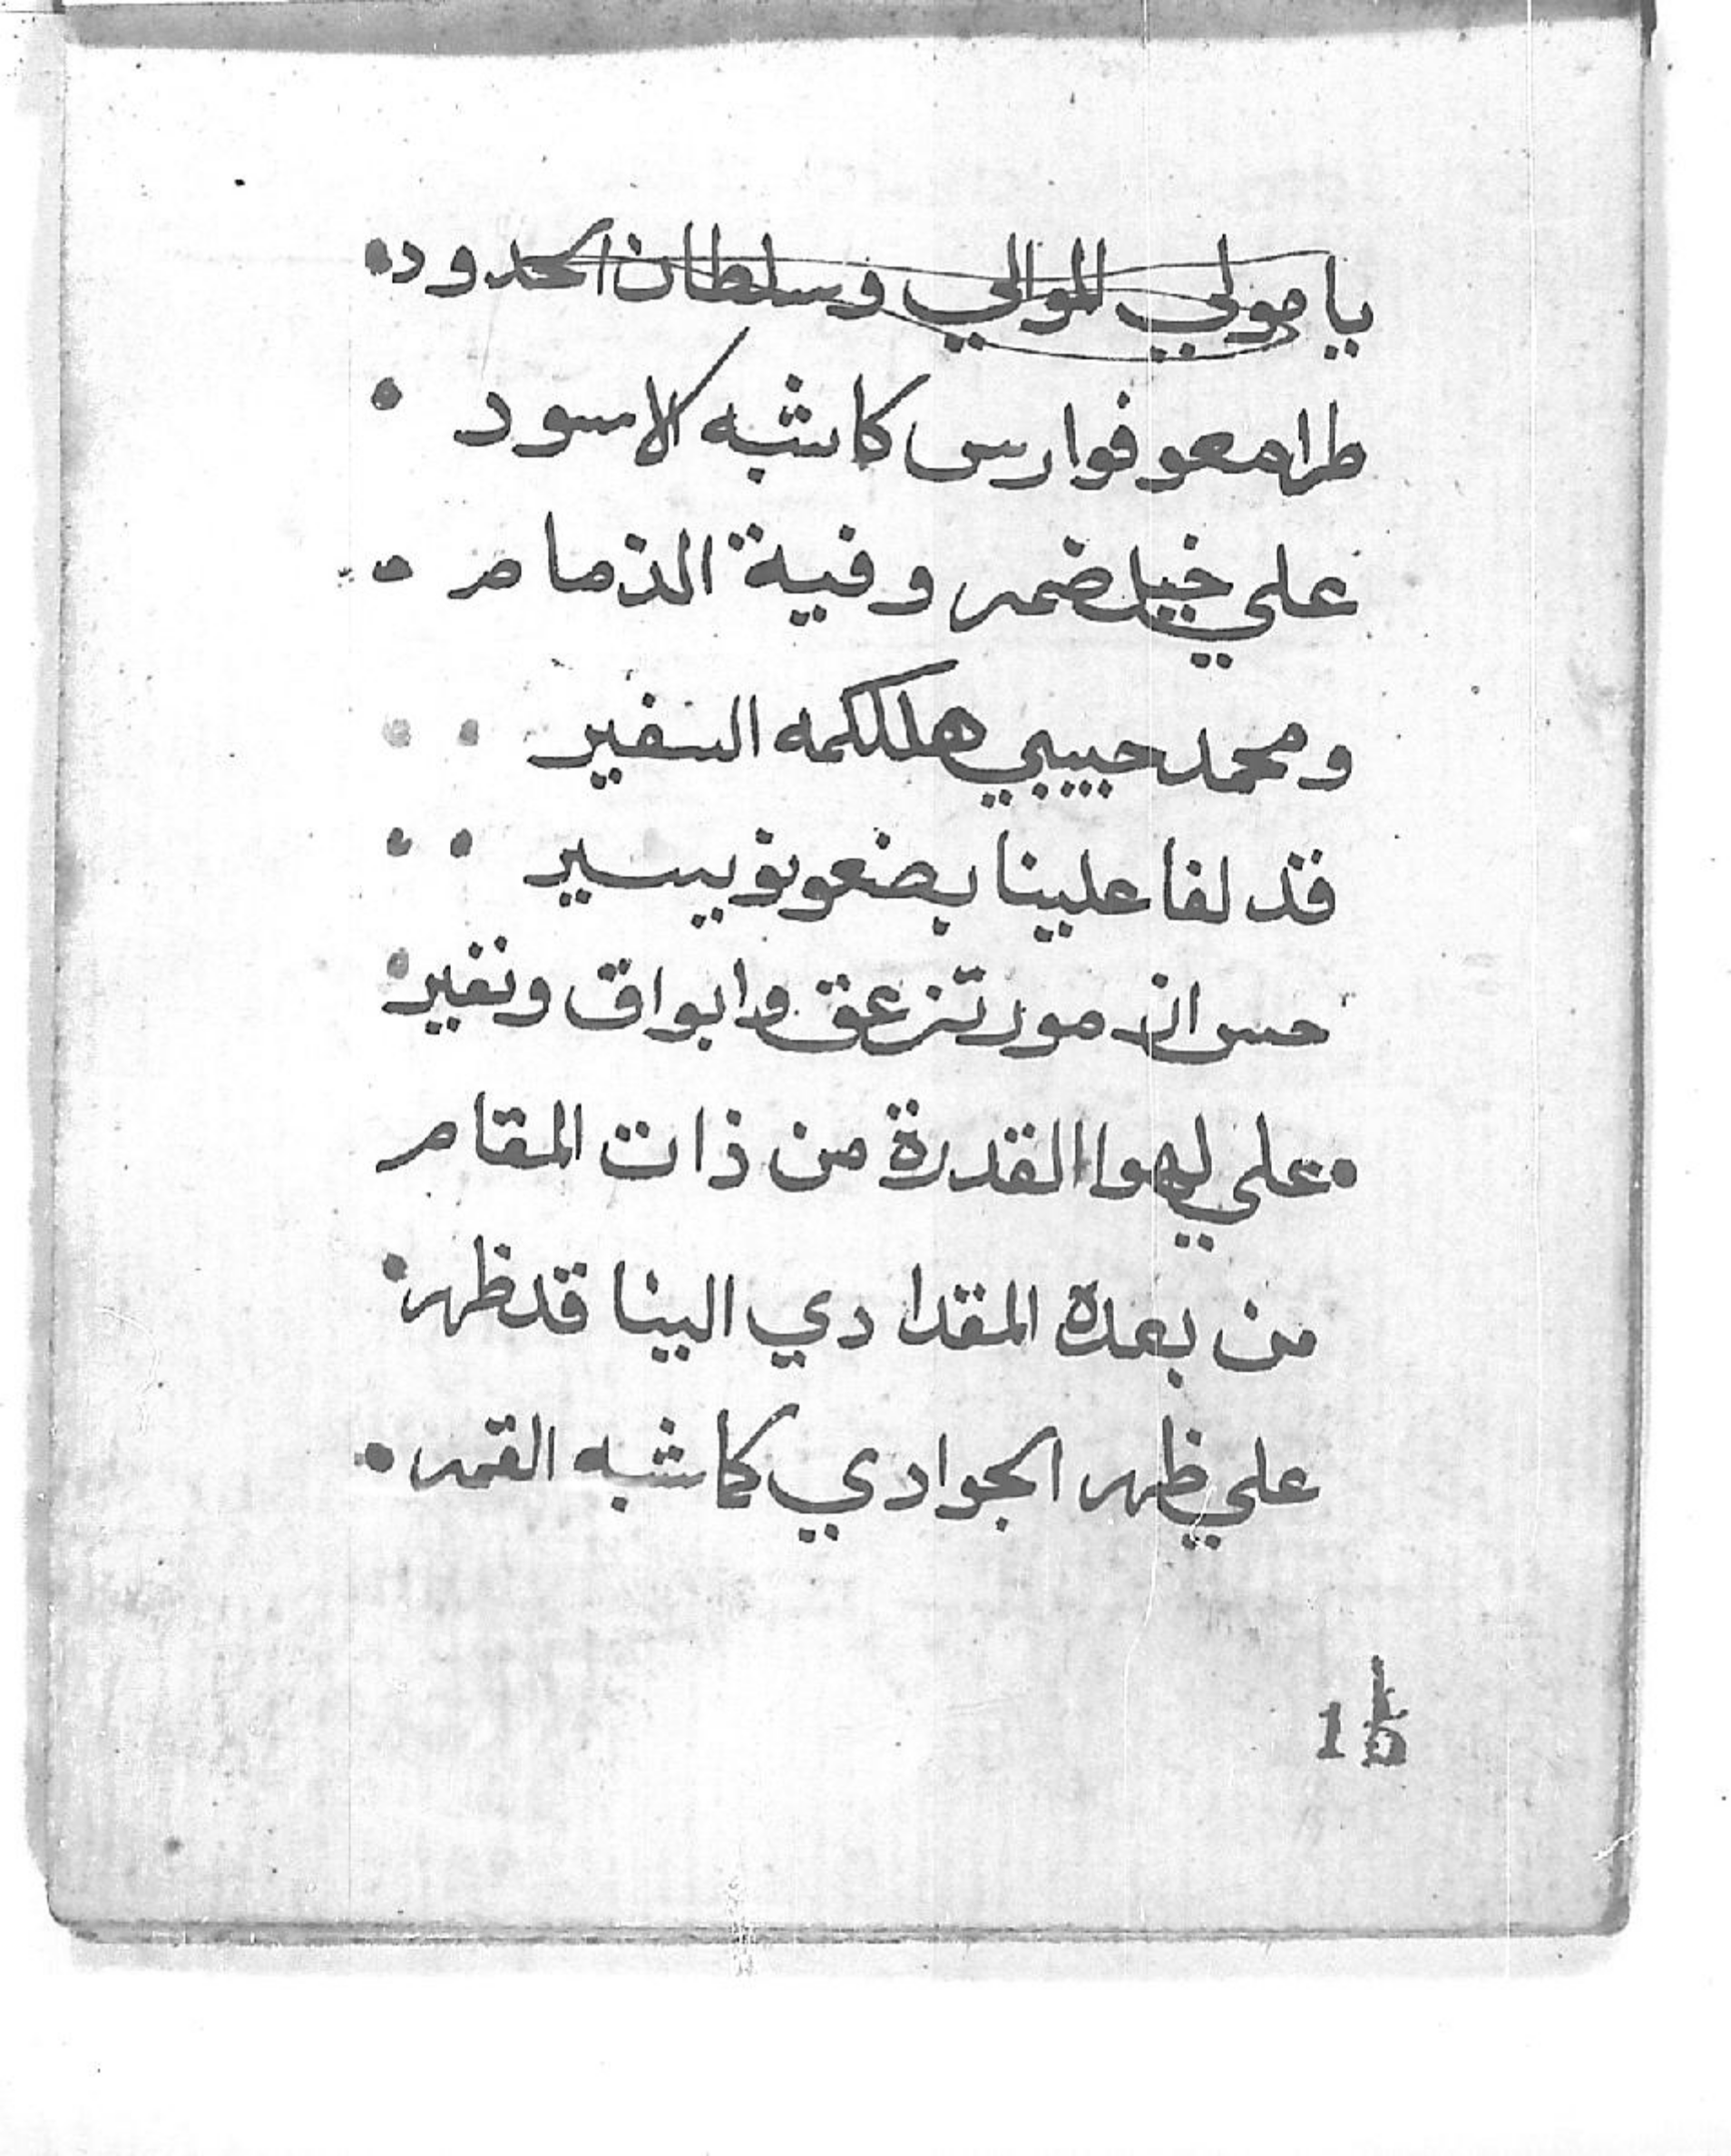 يا مولي الموالي وسلطان الحدود
طرا معو فوارس كا شبه الاسود
علي خيل ضمر وفية الذمام
ومحمد حبيبي هللكمه السفير
قد لفا علينا بضعونو يسير
حس ان مور تزعق وابواق ونفير
علي لهوا القدرة من ذات المقام
من بعدة المقدادي الينا قد ظهر
علي ظهر الجوادي كما شبه القمر